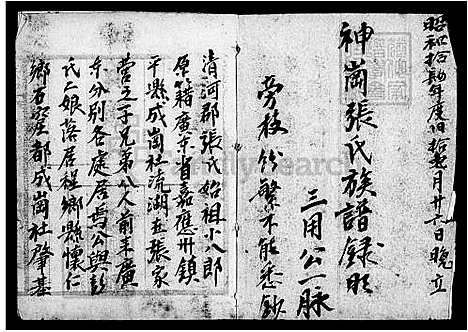 昭和拾玖年度旧拾弍月廿六日晚立
神崗張氏族譜錄明
三用公一脉
旁枝以繁不能悉鈔
清河郡張氏始祖小八郎
原籍廣東省嘉應州鎮
平縣成崗社流湖五張家
营之子兄弟八人前来廣
东分别各處居焉公與彭
氏二娘落居程鄉縣懷仁
鄉石窟都成崗社肇基
FamilySearch